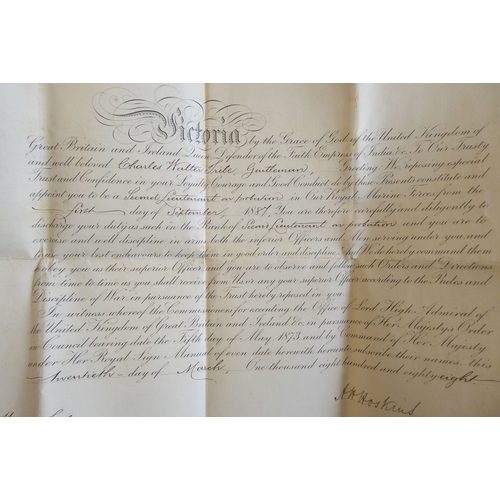 Victoria by the Grace of God of the United Kingdom of
Great Britain and Ireland, Queen, Defender of the Faith, Empress of India &c. To Our Trusty
and well beloved Charles Walter Gentleman, Greeting. We, reposing especial
Trust and Confidence in your Loyalty, Courage, and Good Conduct, do by these Presents constitute and
appoint you to be a Second Lieutenant on probation in Our Royal Marine Forces from the
first day of September, 1887. You are therefore carefully and diligently to
discharge your duty as such in the Rank of Second Lieutenant on probation and you are to
exercise and well discipline in arms both the inferior Officers and Men serving under you, and
use your best endeavours to keep them in good order and discipline. We do hereby command them
to obey you as their superior Officer, and you are to observe and follow such Orders and Directions
from time to time as you shall receive from Us or any your superior Officer according to the Rules and
Discipline of War, in pursuance of the Trust hereby reposed in you.
In witness whereof the Commissioners for executing the Office of Lord High Admiral of
the United Kingdom of Great Britain and Ireland &c. in pursuance of Her Majesty's Order
in Council bearing date the Fifth day of May 1873 and by Command of Her Majesty
under Her Royal Sign Manual of even date herewith hereunto subscribe their names, this
twentieth day of March, One thousand eight hundred and eighty eight
A H Hoskins